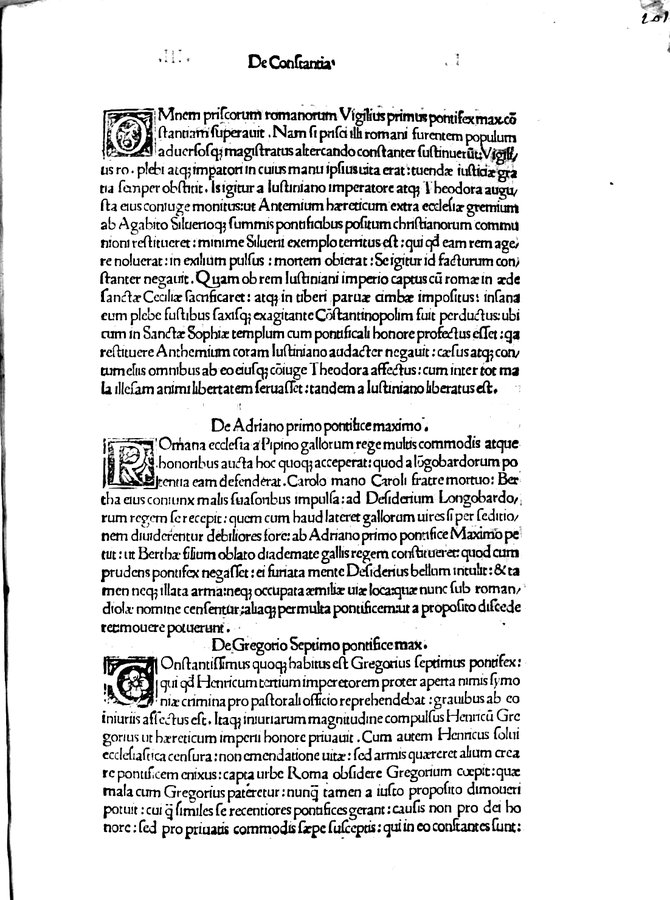 201
De Conſtantia
OMnem priſcorum romanorum Vigilius primus pontifex max.cō
ſtantiam ſuperauit . Nam ſi priſci illi romani furentem populum
aduerſoſq; magiſtratus altercando conſtanter ſuſtinuerūt: Vigili/
us ro . plebi atq; impatori in cuius manu ipſius uita erat : tuendæ iuſticiæ gra
tia ſemper obſtitit . Is igitur a Iuſtiniano imperatore atq; Theodora augu/
ſta eius coniuge monitus: ut Antemium hæreticum extra eccleſiæ gremium
ab Agabito Siluerioq; ſummis pontificabus poſitum chriſtianorum commu
nioni reſtitueret : minime Siluerii exemplo territus eſt : qui qđ eam rem age/
re noluerat : in exilium pulſus : mortem obierat : Se igitur id facturum con/
ſtanter negauit . Quam ob rem Iuſtiniani imperio captus cū romæ in æde
ſanctæ Ceciliæ ſacrificaret : atq; in tiberi paruæ cimbæ impoſitus : inſana
eum plebe fuſtibus ſaxiſq; exagitante Cōſtantinopolim fuit perductus: ubi
cum in Sanctæ Sophiæ templum cum pontificali honore profectus eſſet : ſe
reſtituere Anthemium coram Iuſtiniano audacter negauit : cæſus atq; con/
tumeliis omnibus ab eo eiuſq; cōiuge Theodora affectus : cum inter tot ma
la illeſam animi libertatem ſeruaſſet : tandem a Iuſtiniano liberatus eſt .
De Adriano primo pontifice maximo .
ROmana eccleſia a Pipino gallorum rege multis commodis atque
honoribus aucta hoc quoq; acceperat : quod a lōgobardorum po
tentia eam defenderat . Carolo mano Caroli fratre mortuo : Ber
tha eius coniunx malis ſuaſoribus impulſa : ad Deſiderium Longobardo/
rum regem ſe recepit : quem cum haud lateret gallorum uires ſi per ſeditio/
nem diuiderentur debiliores fore : ab Adriano primo pontifice Maximo pe
tiit : ut Berthæ filium oblato diademate gallis regem conſtitueret: quod cum
prudens pontifex negaſſet : ei furiata mente Deſiderius bellum intulit : & ta
men neq; illata arma : neq; occupata æmiliæ uiæ loca : quæ nunc ſub roman/
diolæ nomine cenſentur: aliaq; permulta pontificem aut a propoſito diſcede
re : mouere potuerunt .
De Gregorio Septimo pontifice max.
COnſtantiſſimus quoq; habitus eſt Gregorius ſeptimus pontifex :
qui qđ Henricum tertium imperetorem proter aperta nimis ſymo
niæ crimina pro paſtorali officio reprehendebat : grauibus ab eo
iniuriis affectus eſt . Itaq; iniuriarum magnitudine compulſus Henricū Gre
gorius ut hæreticum imperii honore priuauit . Cum autem Henricus ſolui
eccleſiaſtica cenſura : non emendatione uitæ : ſed armis quæreret alium crea
re pontificem enixus : capta urbe Roma obſidere Gregorium cœpit : quæ
mala cum Gregorius pateretur : nunq̄ tamen a iuſto propoſito dimoueri
potuit : cui q̄ ſimiles ſe recentiores pontifices gerant : cauſis non pro dei ho
nore : ſed pro priuatis commodis ſæpe ſuſceptis : qui in eo conſtantes ſunt :